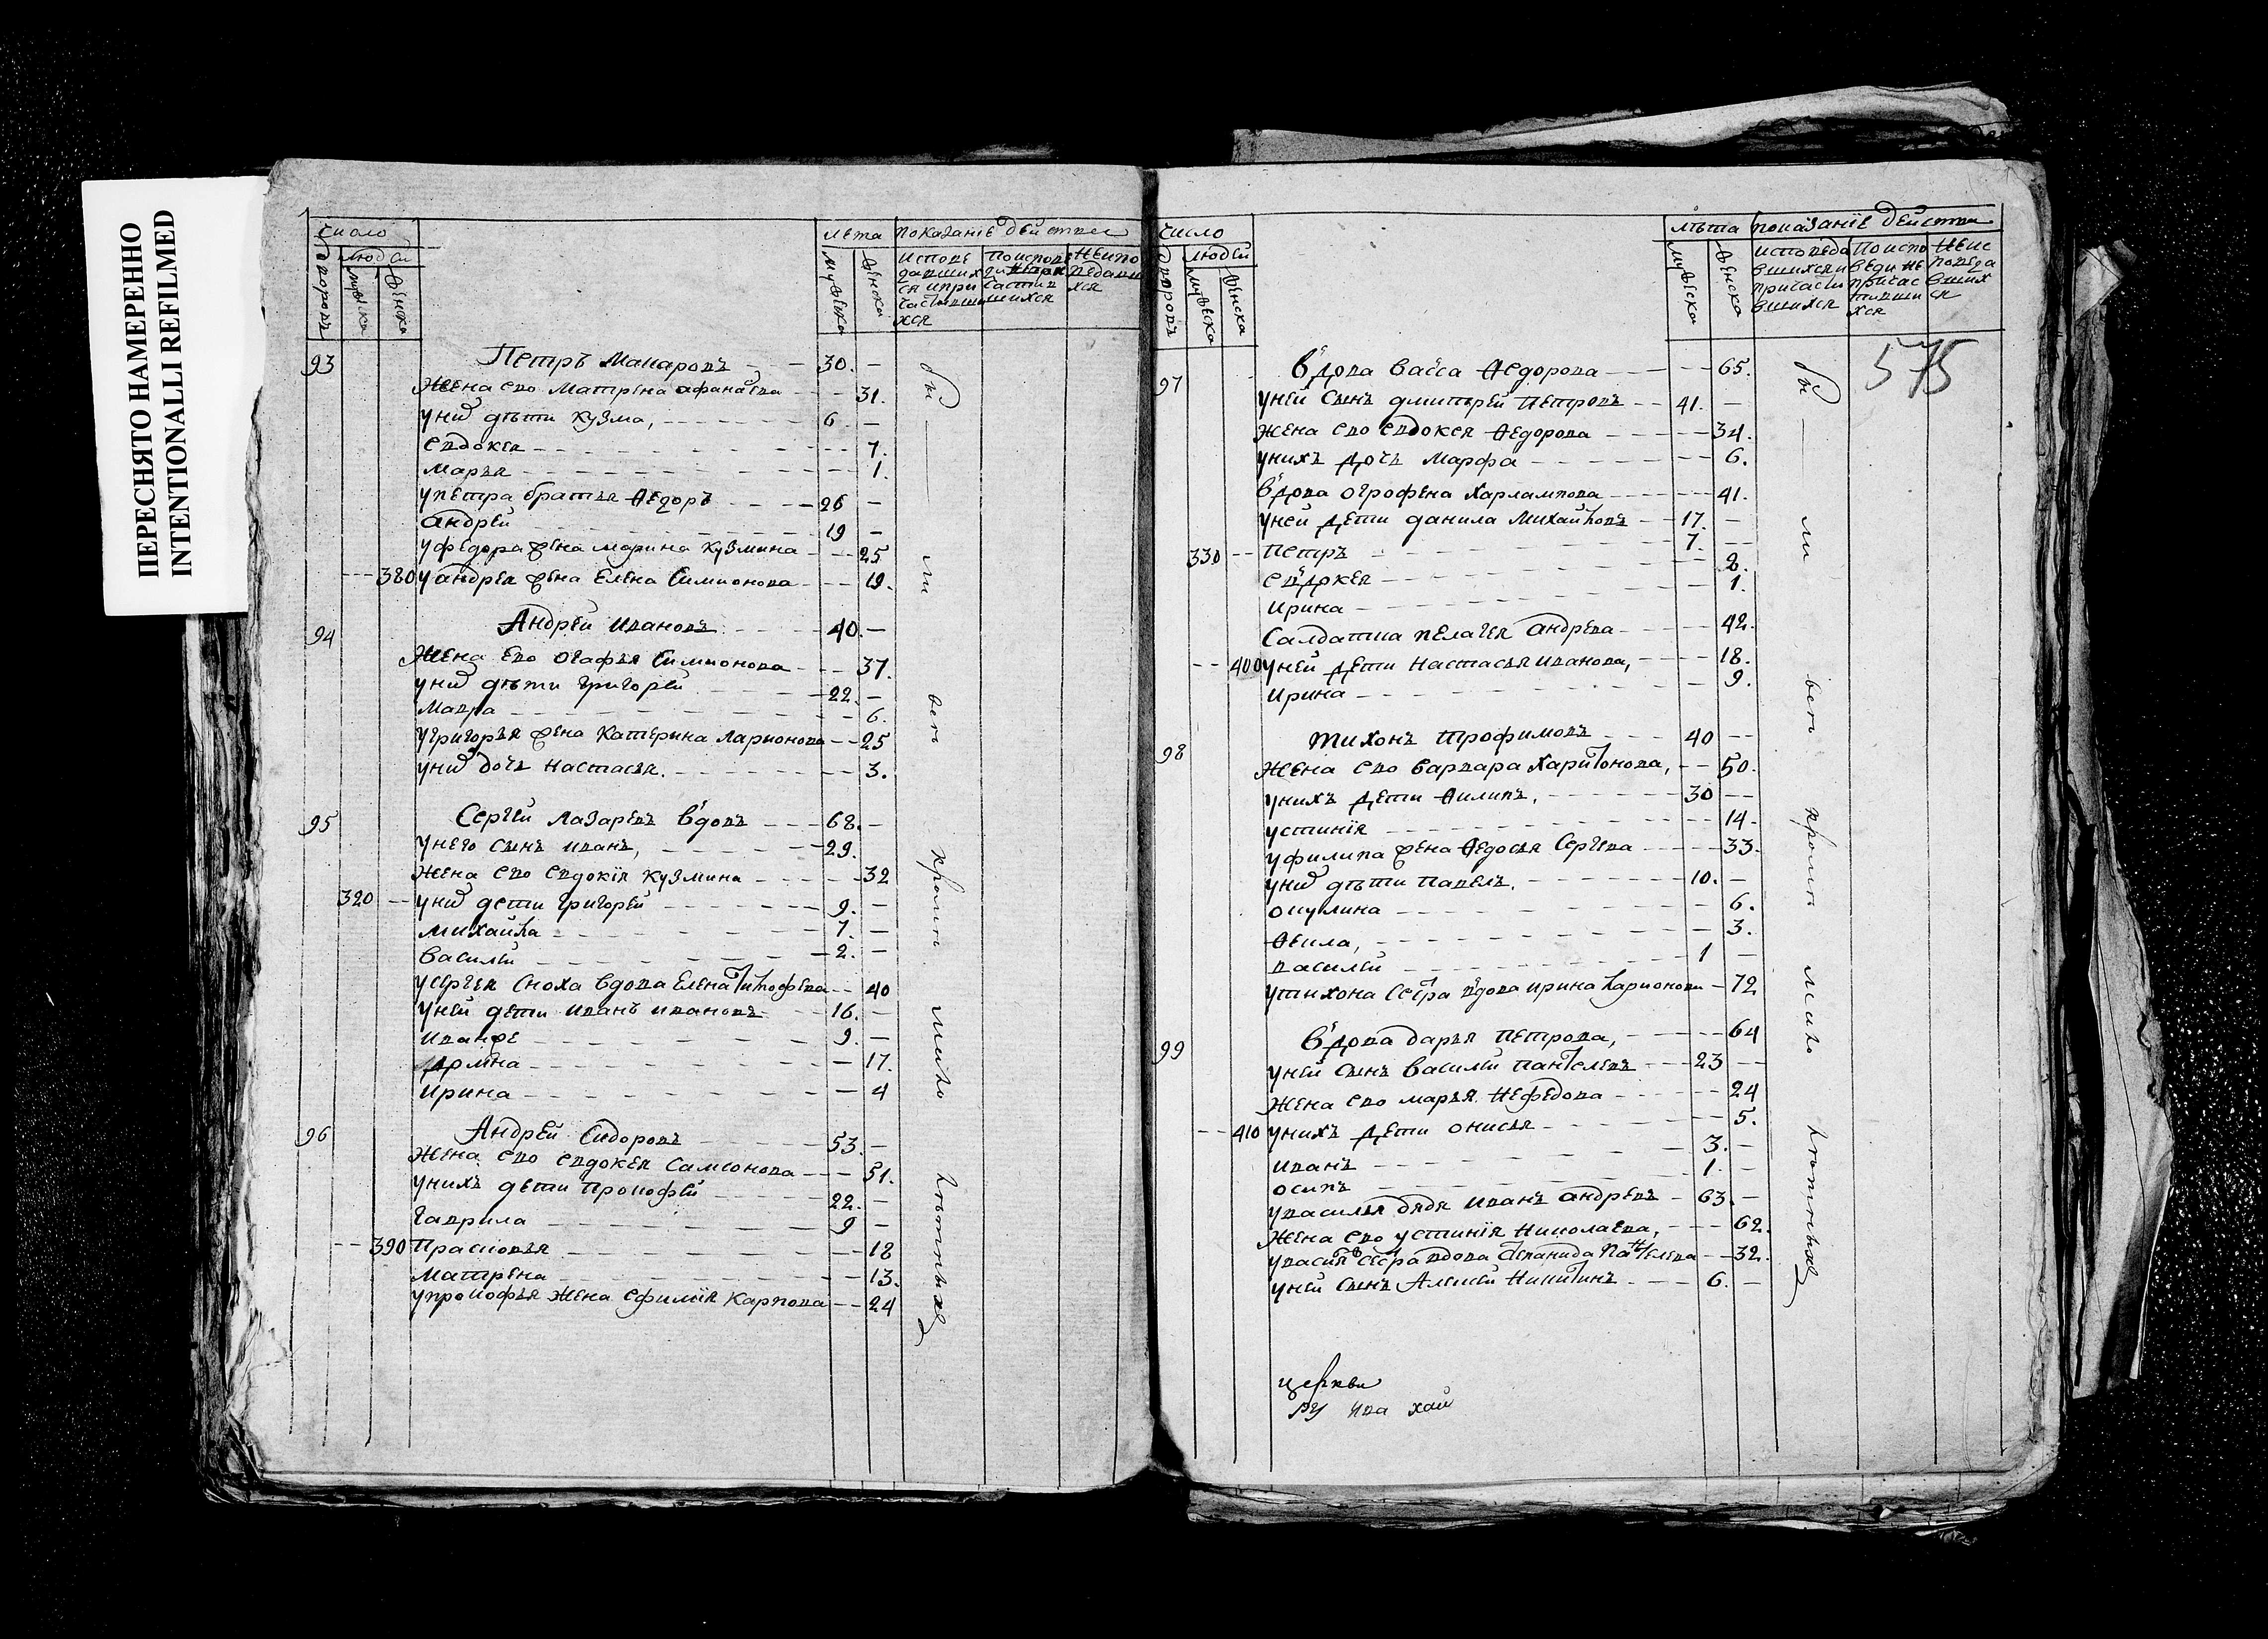 ПЕРЕСНЯТО НАМЕРЕННО
INTENTIONALLI REFILMED
число
лѣта показанїе действа
дворовъ
людей
мужеска
женска
мужеска
женска
исповедавшихся и причастившихся
93 Петръ Макаровъ 30. —
Жена ево Матрена афанасева 31.
у них дѣти кузма, 6 —
Евдокея 7.
Марья 1.
у петра братья Ѳедоръ 26 —
андрей 19 —
у федора жена марина кузмина 25
380 у андрея жена Елена Симионова 19.
94 Андрей ивановъ 40. —
Жена Ево огафья Симионова 37.
у них дѣти григорей 22. —
Мавра 6.
у григорья жена Катерина Ларионова 25
у них дочь настасья. 3.
95 Сергей лазаревъ вдовъ 68. —
у него сынъ иванъ, 29.
жена ево евдокїя кузмина 32
320 у них дети григорей 9. —
михайла 7. —
василей 2. —
у сергея сноха вдова Елена Тимофеева 40
у ней дети иванъ ивановъ 16. —
иванже 9. —
домна 17.
ирина 4
96 Андрей Сидоровъ 53. —
жена ево евдокея Самсонова 51.
у нихъ дети Прокофей 22. —
гаврила 9 —
390 Прасковья 18
матрена 13.
у прокофья жена ефимия карпова 24
были
вси
кроме
мало
летныхъ
число
лѣта показанїе действа
дворовъ
людей
мужеска
женска
мужеска
женска
исповедавшихся и причастившихся
по исповеди не причастившихся
не исповедавшихся
575
97 вдова васса Ѳедорова 65.
у ней сынъ дмитрей петровъ 41. —
жена ево евдокея Ѳедорова 34.
у нихъ дочь марфа 6.
вдова огрофена харлампова 41.
у ней дети данила Михайловъ 17. —
330 петръ 7. —
евдокея 8.
ирина 1.
Салдатка пелагея андрева 42.
400 у ней дети настасья иванова, 18.
ирина 9.
98 тихонъ трофимовъ 40 —
жена ево варвара харитонова, 50.
у нихъ дети Ѳилипъ, 30 —
устинїя 14.
у филипа жена Ѳедосья сергева 33.
у них дѣти павелъ, 10. —
окулина 6.
Ѳекла, 3.
василей 1 —
у тихона сестра вдова ирина ларионова 72
99 вдова дарья петрова, 64
у ней сынъ василей пантелевъ 23 —
жена ево марья нефедова 24
410 у нихъ дети онисья 5.
иванъ 3. —
осипъ 1. —
у василья дядя иванъ андревъ 63. —
жена ево устинїя николаева, 62.
у василя сестра вдова степанида пантелева 32.
у ней сынъ Алексей никитинъ 6. —
были
вси
кроме
мало
летныхъ
церкви